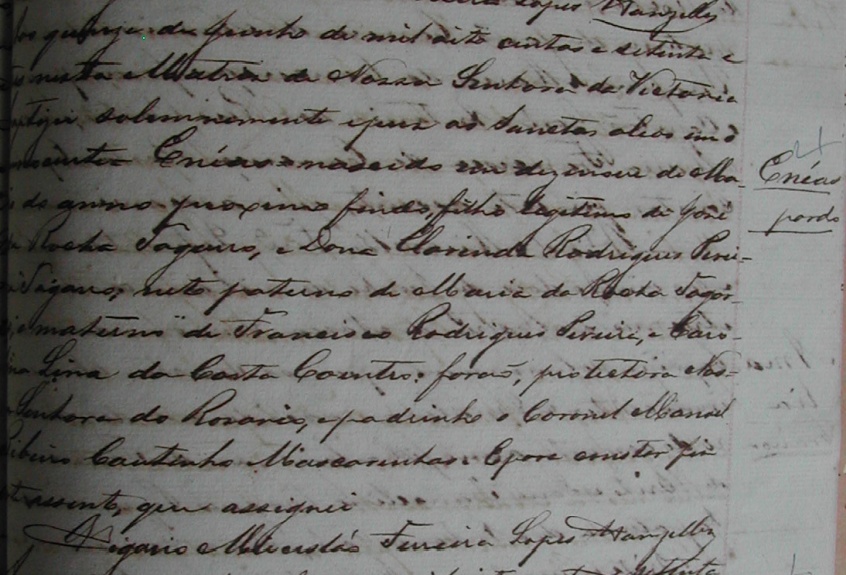 Lopes Wanzelley
quinze de Junho de mil oito centos e setenta e
nesta Matriz de Nossa Senhora da Victoria
baptizei solemnemente e puz os Sanctos oleos ao
innocente Enéas nascido em dezenove de Ma-
do anno proximo findo, filho legitimo de José
Rocha Tagarro, e Dona Clarinda Rodrigues Perei-
Tagarro, neto paterno de Maria da Rocha Tagar-
e materno de Francisco Rodrigues Pereira, e Caro-
Lina da Costa Coentro: forão, protectora Nos-
Senhora do Rosario, e padrinho o Coronel Manoel
Ribeiro Coutinho Mascarenhas. E para constar fiz
assento, que assignei
Vigario Ferreira Lopes Wanzelley
Enéas
pardo